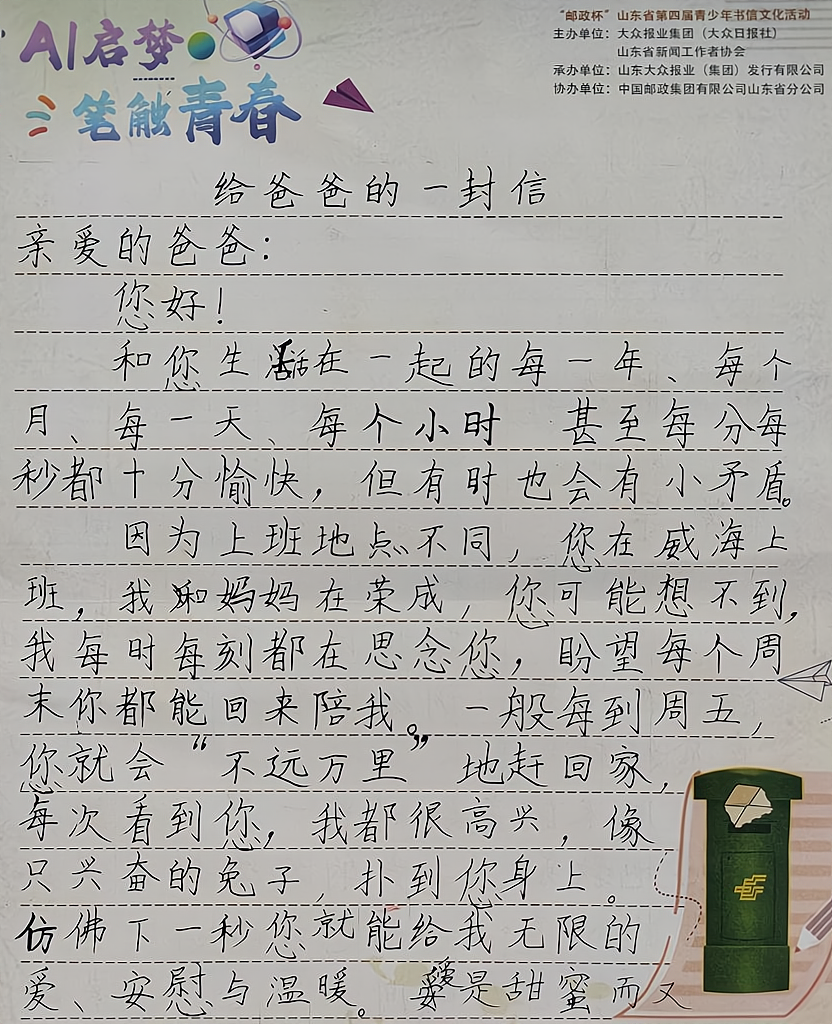 AI启梦
笔触青春
"邮政杯"山东省第四届青少年书信文化活动
主办单位：大众报业集团（大众日报社）
山东省新闻工作者协会
承办单位：山东大众报业（集团）发行有限公司
协办单位：中国邮政集团有限公司山东省分公司
给爸爸的一封信
亲爱的爸爸：
您好！
和您生活在一起的每一年、每个
月、每一天、每个小时 甚至每分每
秒都十分愉快，但有时也会有小矛盾。
因为上班地点不同，您在威海上
班，我和妈妈在荣成，您可能想不到，
我每时每刻都在思念您，盼望每个周
末你都能回来陪我。一般每到周五，
您就会“不远万里”地赶回家，
每次看到您，我都很高兴，像
只兴奋的兔子 扑到您身上。
仿佛下一秒您就能给我无限的
爱、安慰与温暖。爱是甜蜜而又